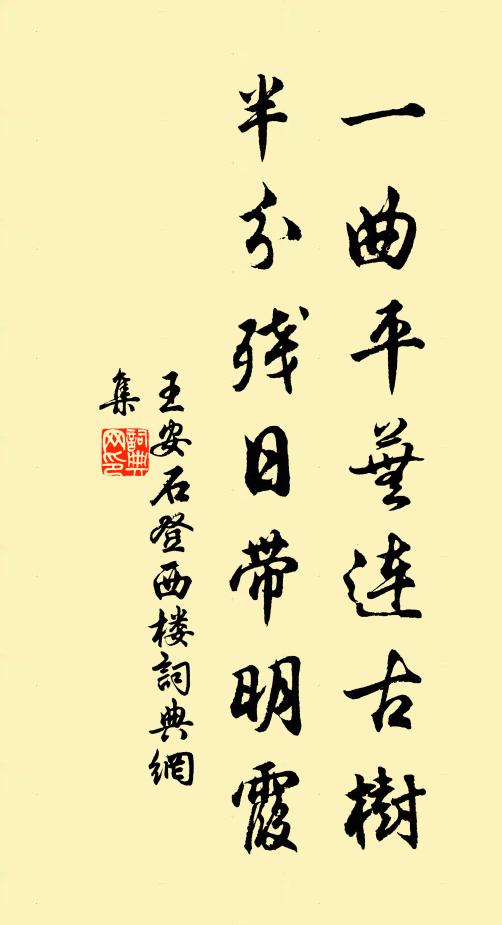 一曲平蕪連古樹
半分残日帶明霞
王安石登西楼詞典網
集
詞典网印